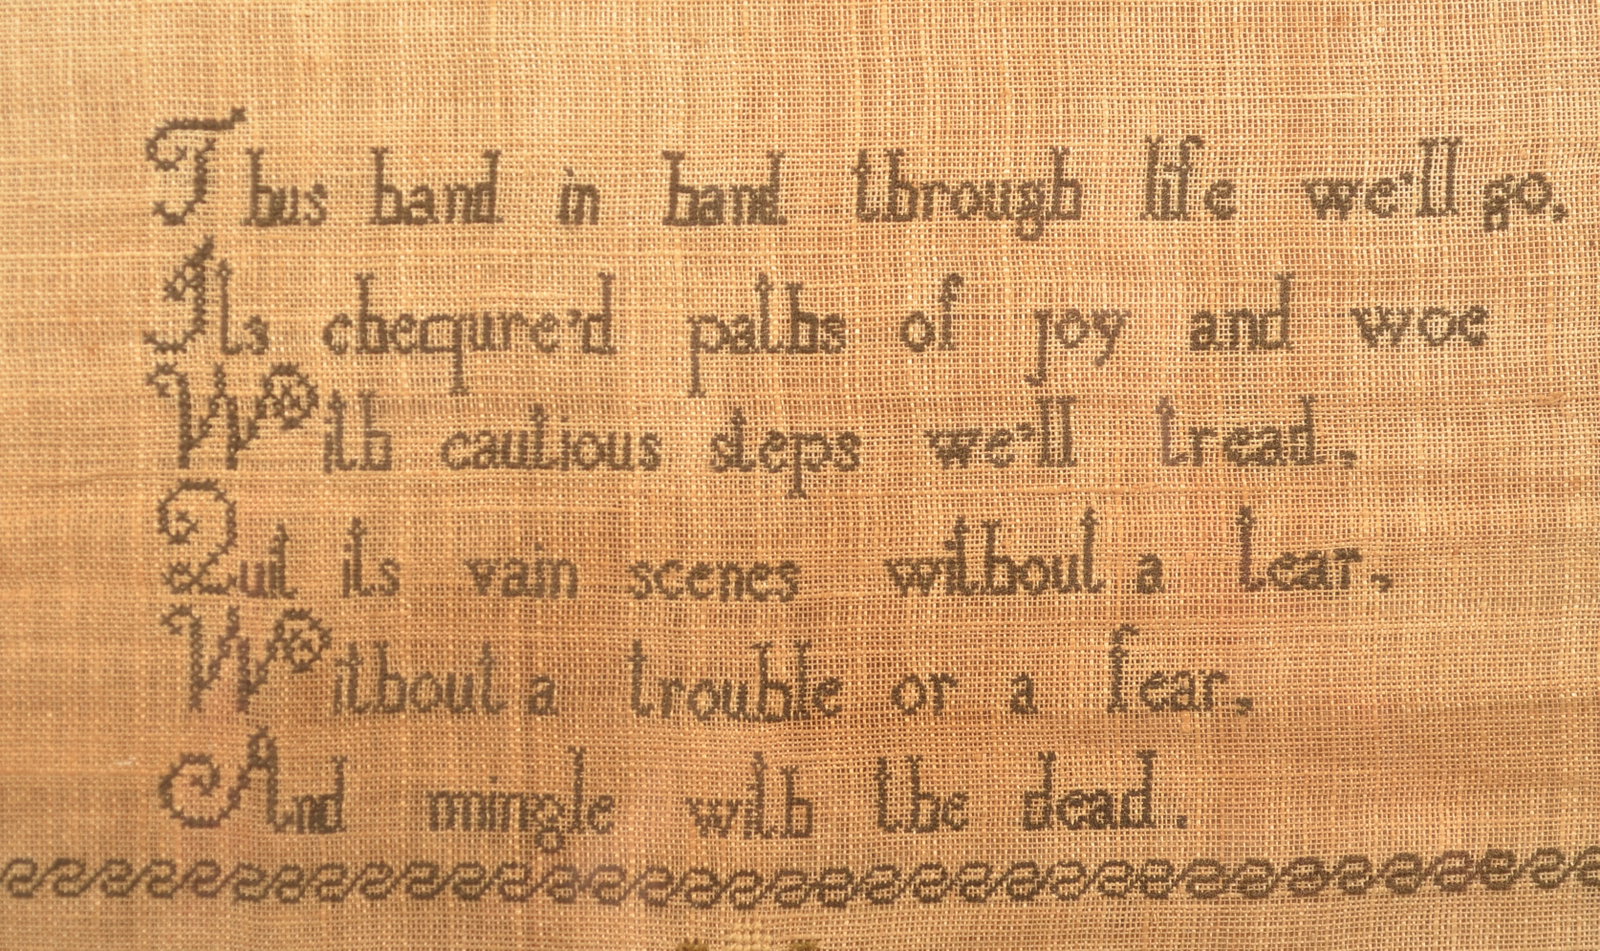 Thus hand in hand through life we'll go,
Its chequre'd paths of joy and woe
With cautious steps we'll tread,
Quit its vain scenes without a tear,
Without a trouble or a fear,
And mingle with the dead.